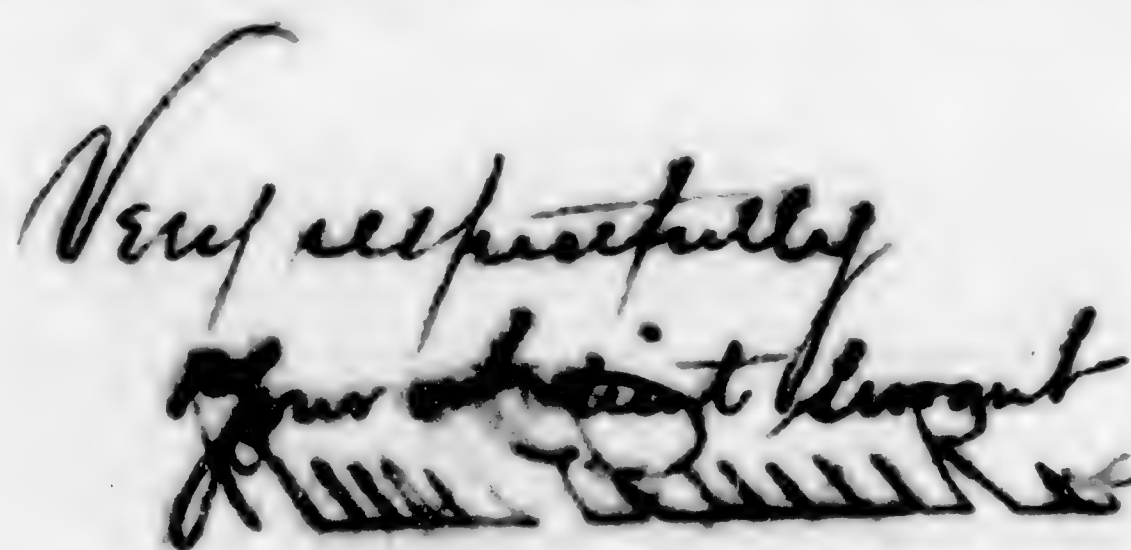 Very respectfully
Your obedient Servant